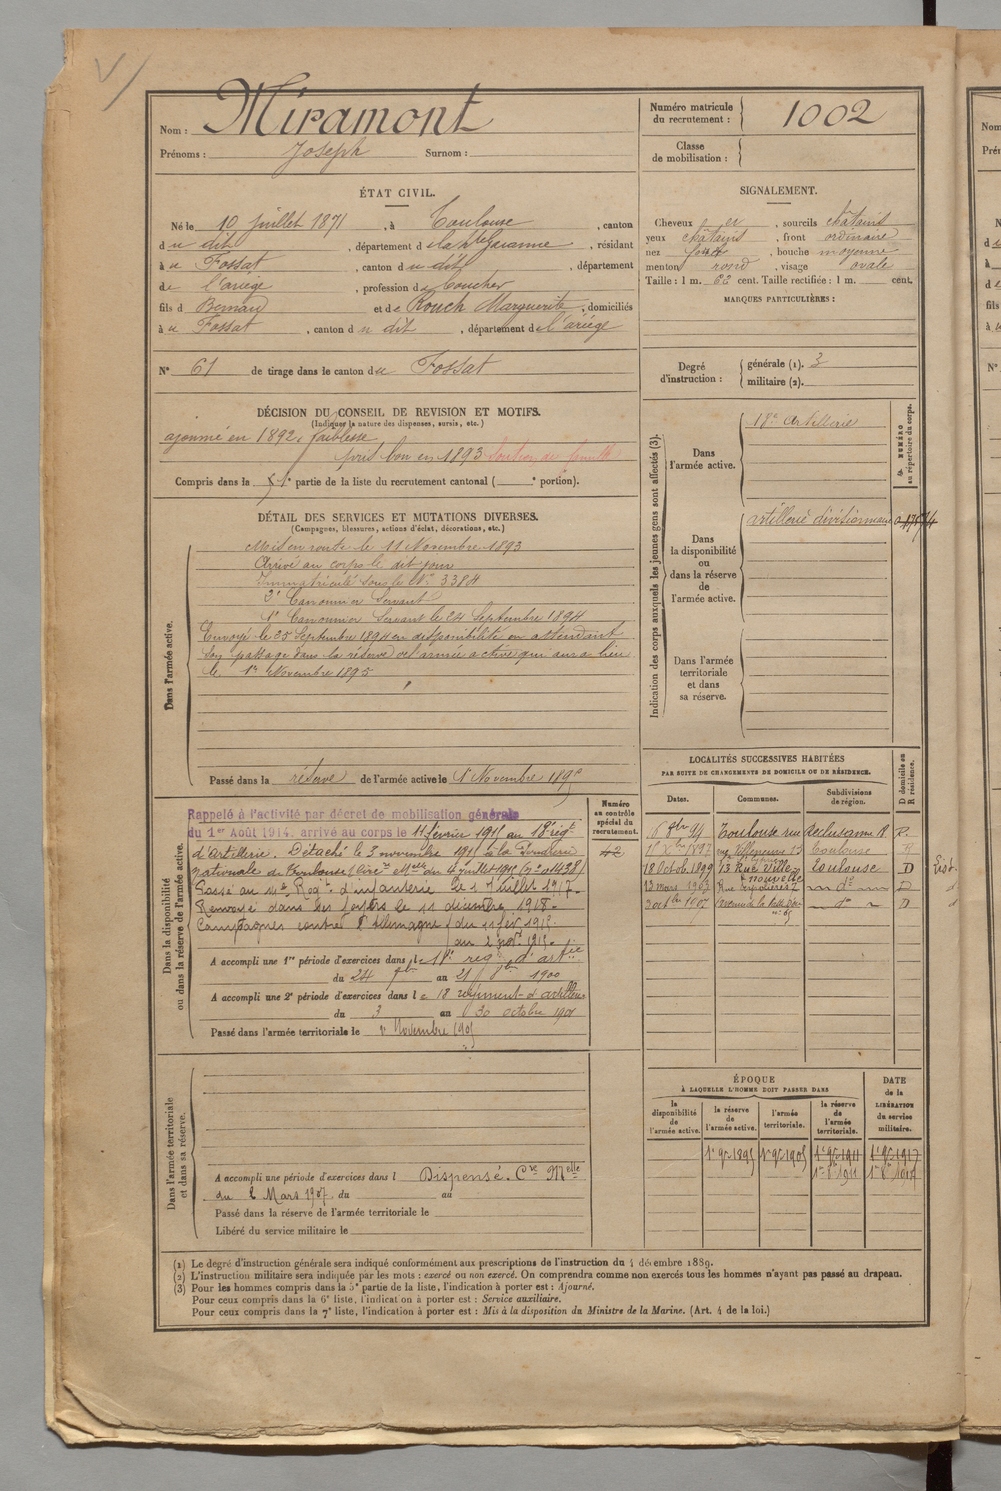 Nom : Miramont
Prénoms : Joseph Surnom :
Numéro matricule du recrutement : 1002
Classe de mobilisation :
ÉTAT CIVIL.
Né le 10 juillet 1871, à Toulouse, canton
du dit, département de la Hte Garonne, résidant
à u Fossat, canton du dit, département
de l'ariège, profession de
fils d Bernard et de Rouch Marguerite, domiciliés
à u Fossat, canton du dit, département de l'ariége
N° 61 de tirage dans le canton du Fossat
SIGNALEMENT.
Cheveux et, sourcils châtains
yeux châtains, front ordinaire
nez, bouche moyenne
menton rond, visage ovale
Taille : 1 m. 62 cent. Taille rectifiée : 1 m. cent.
MARQUES PARTICULIÈRES :
Degré d'instruction :
générale (1). 3
militaire (2).
DÉCISION DU CONSEIL DE REVISION ET MOTIFS.
(Indiquer la nature des dispenses, sursis, etc.)
ajourné en 1892, faiblesse
bon en 1893 soutien de famille
Compris dans la 1e partie de la liste du recrutement cantonal (e portion).
DÉTAIL DES SERVICES ET MUTATIONS DIVERSES.
(Campagnes, blessures, actions d'éclat, décorations, etc.)
Dans l'armée active.
Mis en route le 11 Novembre 1893
Arrivé au corps le dit jour
Immatriculé sous le N° 3384
2e Canonnier Servant
1er Canonnier Servant le 24 Septembre 1894
Envoyé le 25 Septembre 1894 en disponibilité en attendant
son passage dans la réserve de l'armée active qui aura lieu
le 1er Novembre 1895
Passé dans la réserve de l'armée active le 1er Novembre 1895
Indication des corps auxquels les jeunes gens sont affectés (3).
Dans l'armée active.
18e Artillerie
NUMÉRO au répertoire du corps.
Dans la disponibilité ou dans la réserve de l'armée active.
artillerie divisionnaire
Dans l'armée territoriale et dans sa réserve.
Dans la disponibilité ou dans la réserve de l'armée active.
Rappelé à l'activité par décret de mobilisation générale
du 1er Août 1914. arrivé au corps le 11 février 1915 au 18e régt
d'artillerie. Détaché le 3 novembre 1915 à la Poudrerie
nationale de Toulouse (Circre Melle du 4 juillet 1915
Passé au Regt d'infanterie le 1er juillet 1917.
Renvoyé dans ses foyers le 11 décembre 1918.
Campagnes contre l'Allemagne du 11 fév 1915
au 2 nov. 1915.
Numéro au contrôle spécial du recrutement.
42
A accompli une 1re période d'exercices dans le 18e reg. d'artie
du 24 7bre au 21 8bre 1900
A accompli une 2e période d'exercices dans le 18 régiment d'artillerie
du 3 au 30 octobre 190
Passé dans l'armée territoriale le 1er Novembre 1905
LOCALITÉS SUCCESSIVES HABITÉES
PAR SUITE DE CHANGEMENTS DE DOMICILE OU DE RÉSIDENCE.
Dates. Communes. Subdivisions de région. D domicile ou R résidence.
94 Toulouse rue Reclusane R.
1897 rue Villeneuve 13 Toulouse R
18 Octob. 1899 13 Rue Ville nouvelle Toulouse D
13 mars 1903 Rue 2 do D
3 octbre 1907 do D
Dans l'armée territoriale et dans sa réserve.
A accompli une période d'exercices dans l Dispensé. Cre Melle
du 2 Mars 1907. du au
Passé dans la réserve de l'armée territoriale le
Libéré du service militaire le
ÉPOQUE
À LAQUELLE L'HOMME DOIT PASSER DANS
la disponibilité de l'armée active.
la réserve de l'armée active.
l'armée territoriale.
la réserve de l'armée territoriale.
DATE de la LIBÉRATION du service militaire.
1er 9bre 1895 1er 9bre 1905 1er 9bre 1911 1er 9bre 1917
(1) Le degré d'instruction générale sera indiqué conformément aux prescriptions de l'instruction du 4 décembre 1889.
(2) L'instruction militaire sera indiquée par les mots : exercé ou non exercé. On comprendra comme non exercés tous les hommes n'ayant pas passé au drapeau.
(3) Pour les hommes compris dans la 5e partie de la liste, l'indication à porter est : Ajourné.
Pour ceux compris dans la 6e liste, l'indication à porter est : Service auxiliaire.
Pour ceux compris dans la 7e liste, l'indication à porter est : Mis à la disposition du Ministre de la Marine. (Art. 4 de la loi.)